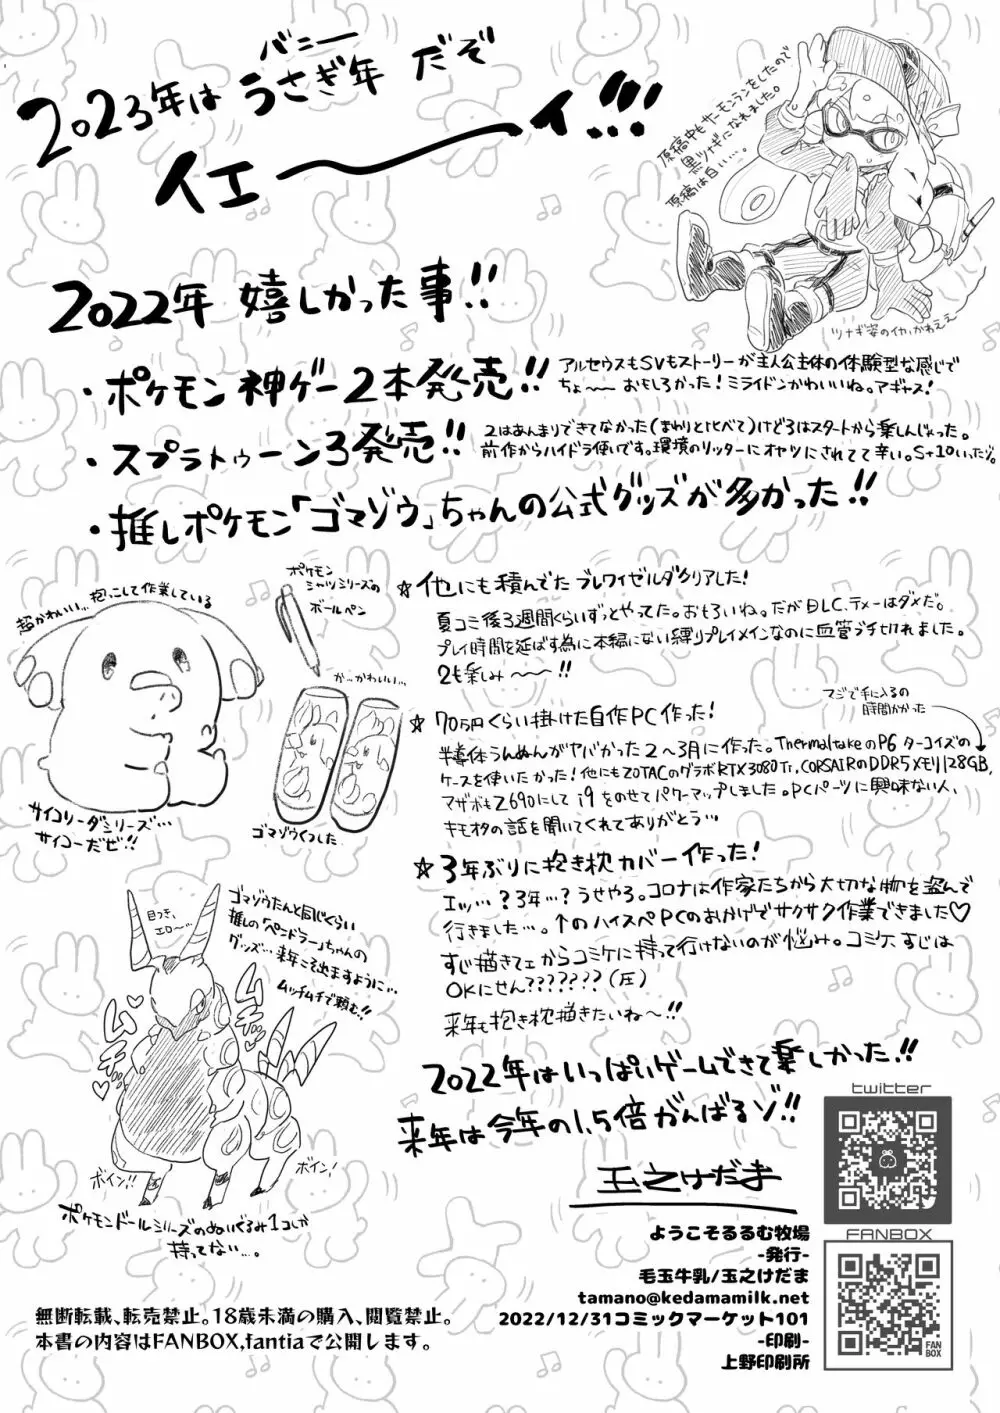 バニー
2023年は うさぎ年 だぞ
イエーーイ!!!
原稿中もサーモンランをしたので
黒ツナギになれました。
原稿は白い…。
ツナギ姿のイカ、かわええ
2022年 嬉しかった事!!
・ポケモン神ゲー2本発売!!
アルセウスもSVもストーリーが主人公主体の体験型な感じで
ちょ〜〜おもしろかった!ミライドンかわいいね。アギャス!
・スプラトゥーン3発売!!
2はあんまりできてなかった(まわりと比べて)けど3はスタートから楽しんじゃった。
前作からハイドラ使いです。環境のリッターにオヤツにされてて辛い。S+10いったゾ。
・推しポケモン「ゴマゾウ」ちゃんの公式グッズが多かった!!
超かわいい…抱っこして作業している
ポケモン
シャツシリーズの
ボールペン
か…かわいい…
サイコソーダシリーズ…
サイコーだぜ!!
ゴマゾウくつした
☆他にも積んでたブレワイゼルダクリアした!
夏コミ後3週間くらいずっとやってた。おもろいね。だがDLC、テメーはダメだ。
プレイ時間を延ばす為に本編にない縛りプレイメインなのに血管ブチ切れました。
2も楽しみ〜〜!!
☆70万円くらい掛けた自作PC作った!
マジで手に入るの
時間かかった
半導体うんぬんがヤバかった2〜3月に作った。ThermaltakeのP6 ターコイズの
ケースを使いたかった!他にもZOTACのグラボRTX3080Ti,CORSAIRのDDR5メモリ128GB,
マザボもZ690にして i9をのせてパワーアップしました。PCパーツに興味ない人、
キモオタの話を聞いてくれてありがとう…
☆3年ぶりに抱き枕カバー作った!
エッ…?3年…?うせやろ。コロナは作家たちから大切な物を盗んで
行きました…。↑のハイスペPCのおかげでサクサク作業できました♡
すじ描きてェからコミケに持って行けないのが悩み。コミケ、すじは
OKにせん???????(圧)
来年も抱き枕描きたいね〜!!
ゴマゾウたんと同じくらい
推しの「ペンドラー」ちゃんの
グッズ…来年こそ出ますように…
ムッチムチで頼む!!
目つき、
エロ〜…
ムチ…♡
ムチ…♡
ボイン!!
ボイン!
ポケモンドールシリーズのぬいぐるみ1コしか
持ってない…。
2022年はいっぱいゲームできて楽しかった!!
来年は今年の1.5倍がんばるゾ!!
玉之けだま
twitter
FANBOX
FAN
BOX
ようこそるるむ牧場
-発行-
毛玉牛乳/玉之けだま
tamano@kedamamilk.net
2022/12/31コミックマーケット101
-印刷-
上野印刷所
無断転載、転売禁止。18歳未満の購入、閲覧禁止。
本書の内容はFANBOX,fantiaで公開します。